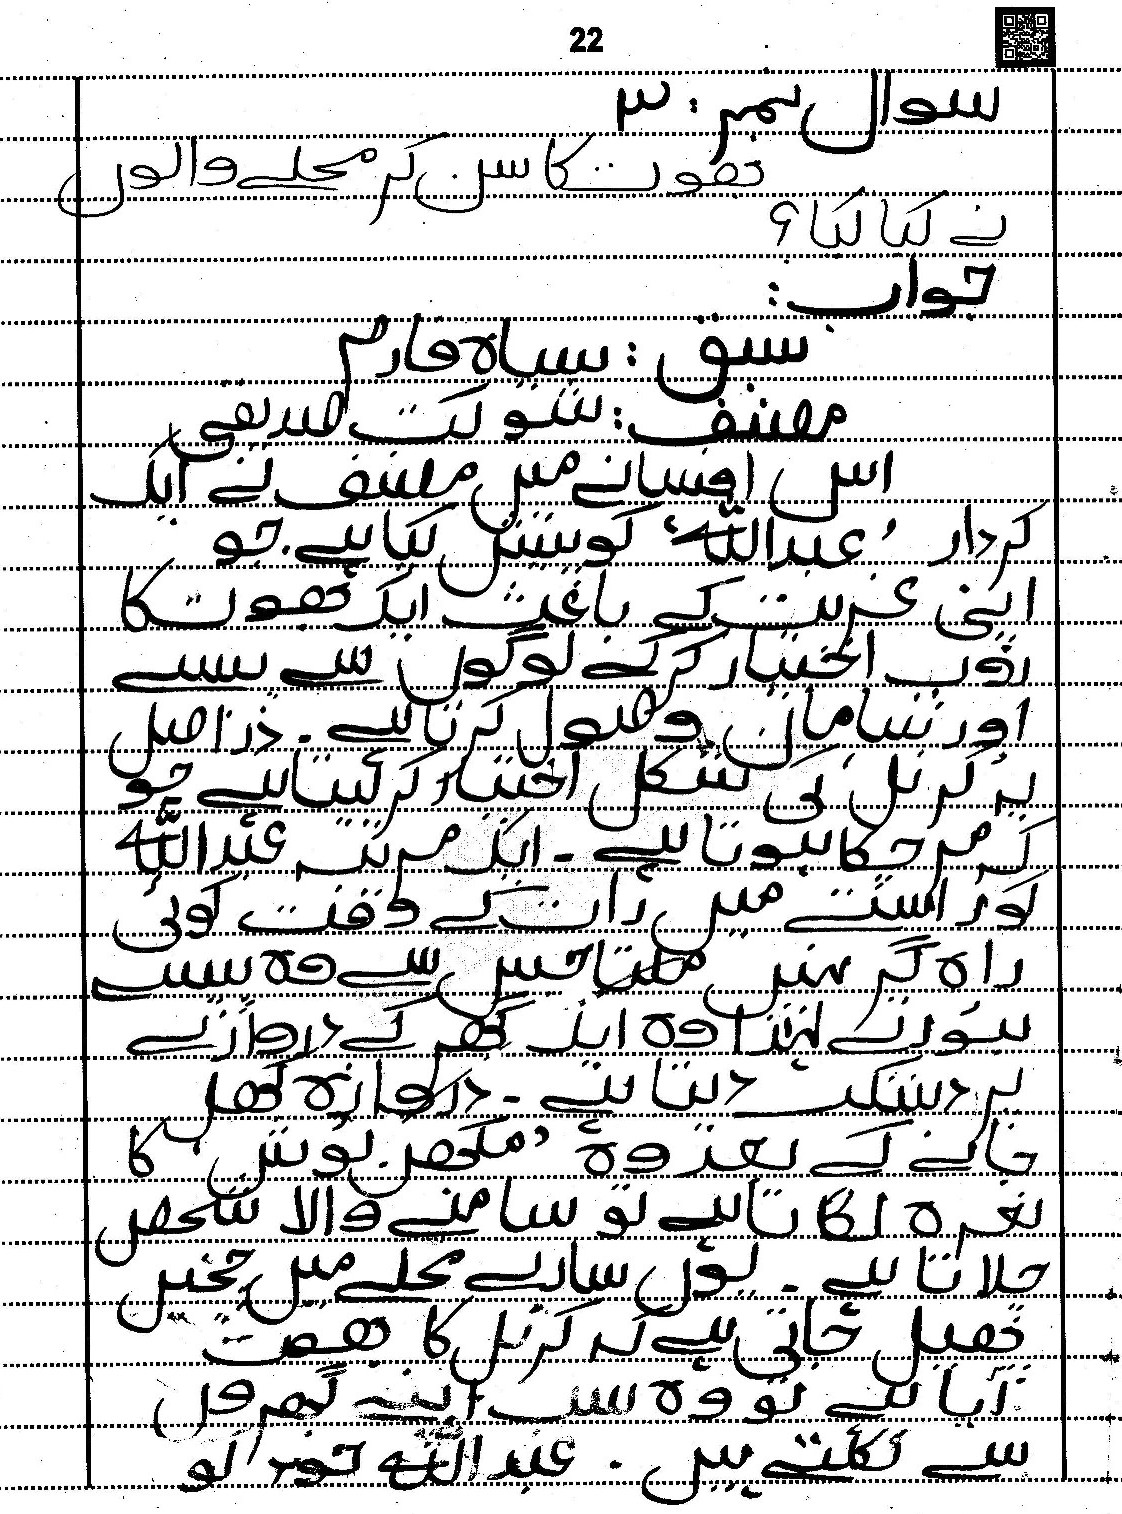 22
سوال نمبر: ۳
بھوت کا سن کر محلے والوں
نے کیا کیا؟
جواب:
سبق: سیاہ فارم
مصنف: شوکت صدیقی
اس افسانے میں مصنف نے ایک
کردار 'عبداللہ' کو پیش کیا ہے۔ جو
اپنی غربت کے باعث ایک بھوت کا
روپ اختیار کرکے لوگوں سے پیسے
اور سامان وصول کرتا ہے۔ دراصل
یہ کرنل کی شکل اختیار کر لیتا ہے جو
کہ مر چکا ہوتا ہے۔ ایک مرتبہ عبداللہ
کو راستے میں رات کے وقت کوئی
راہ گر نہیں ملتا جس سے وہ پیسے
بٹورے لہٰذا وہ ایک گھر کے دروازے
پر دستک دیتا ہے۔ دروازہ کھل
جانے کے بعد وہ 'مکھن توش' کا
نعرہ لگاتا ہے تو سامنے والا شخص
چلاتا ہے۔ یوں سارے محلے میں خبر
پھیل جاتی ہے کہ کرنل کا بھوت
آیا ہے تو وہ سب اپنے گھروں
سے نکلتے ہیں۔ عبداللہ خود کو